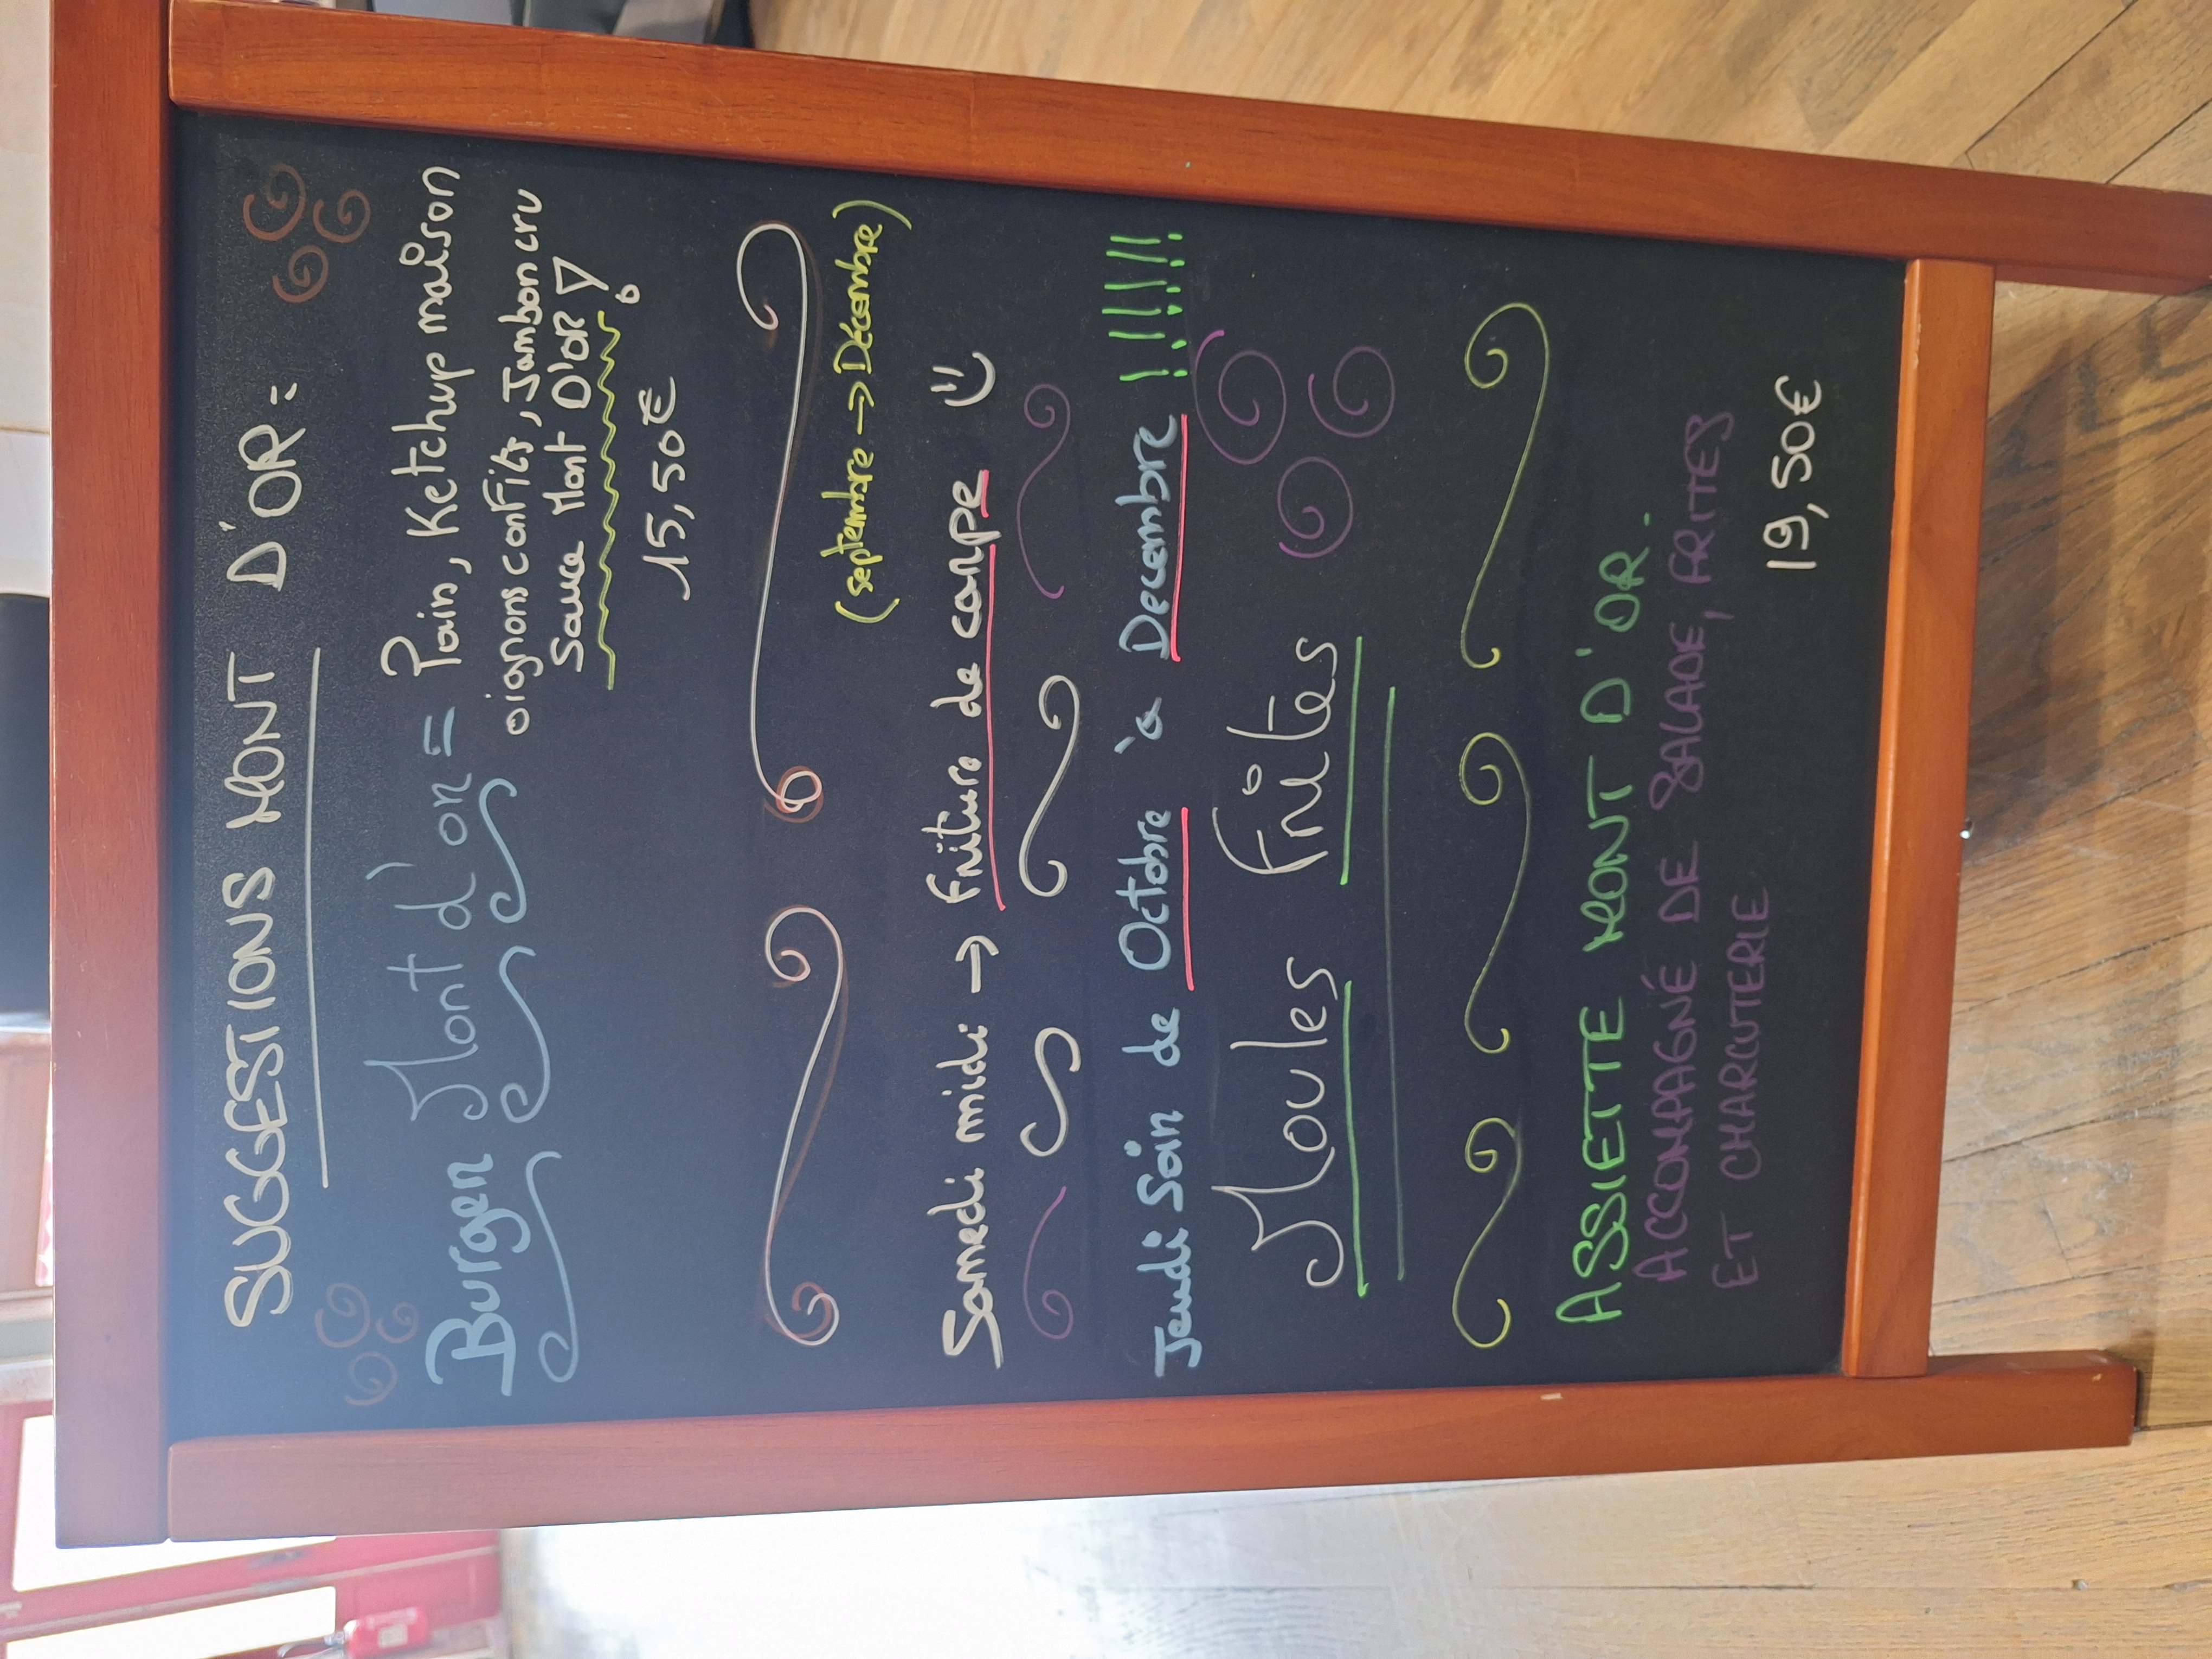 SUGGESTIONS MONT D'OR :
Burger Mont d'or =
Pain, Ketchup maison
oignons confits, Jambon cru
Sauce Mont D'OR !
15,50€
(septembre → Décembre)
Samedi midi → Friture de carpe :)
Jeudi Soir de Octobre à Decembre !!!!!!
Moules Frites
ASSIETTE MONT D'OR.
ACCOMPAGNÉ DE SALADE, FRITES
ET CHARCUTERIE
19,50€